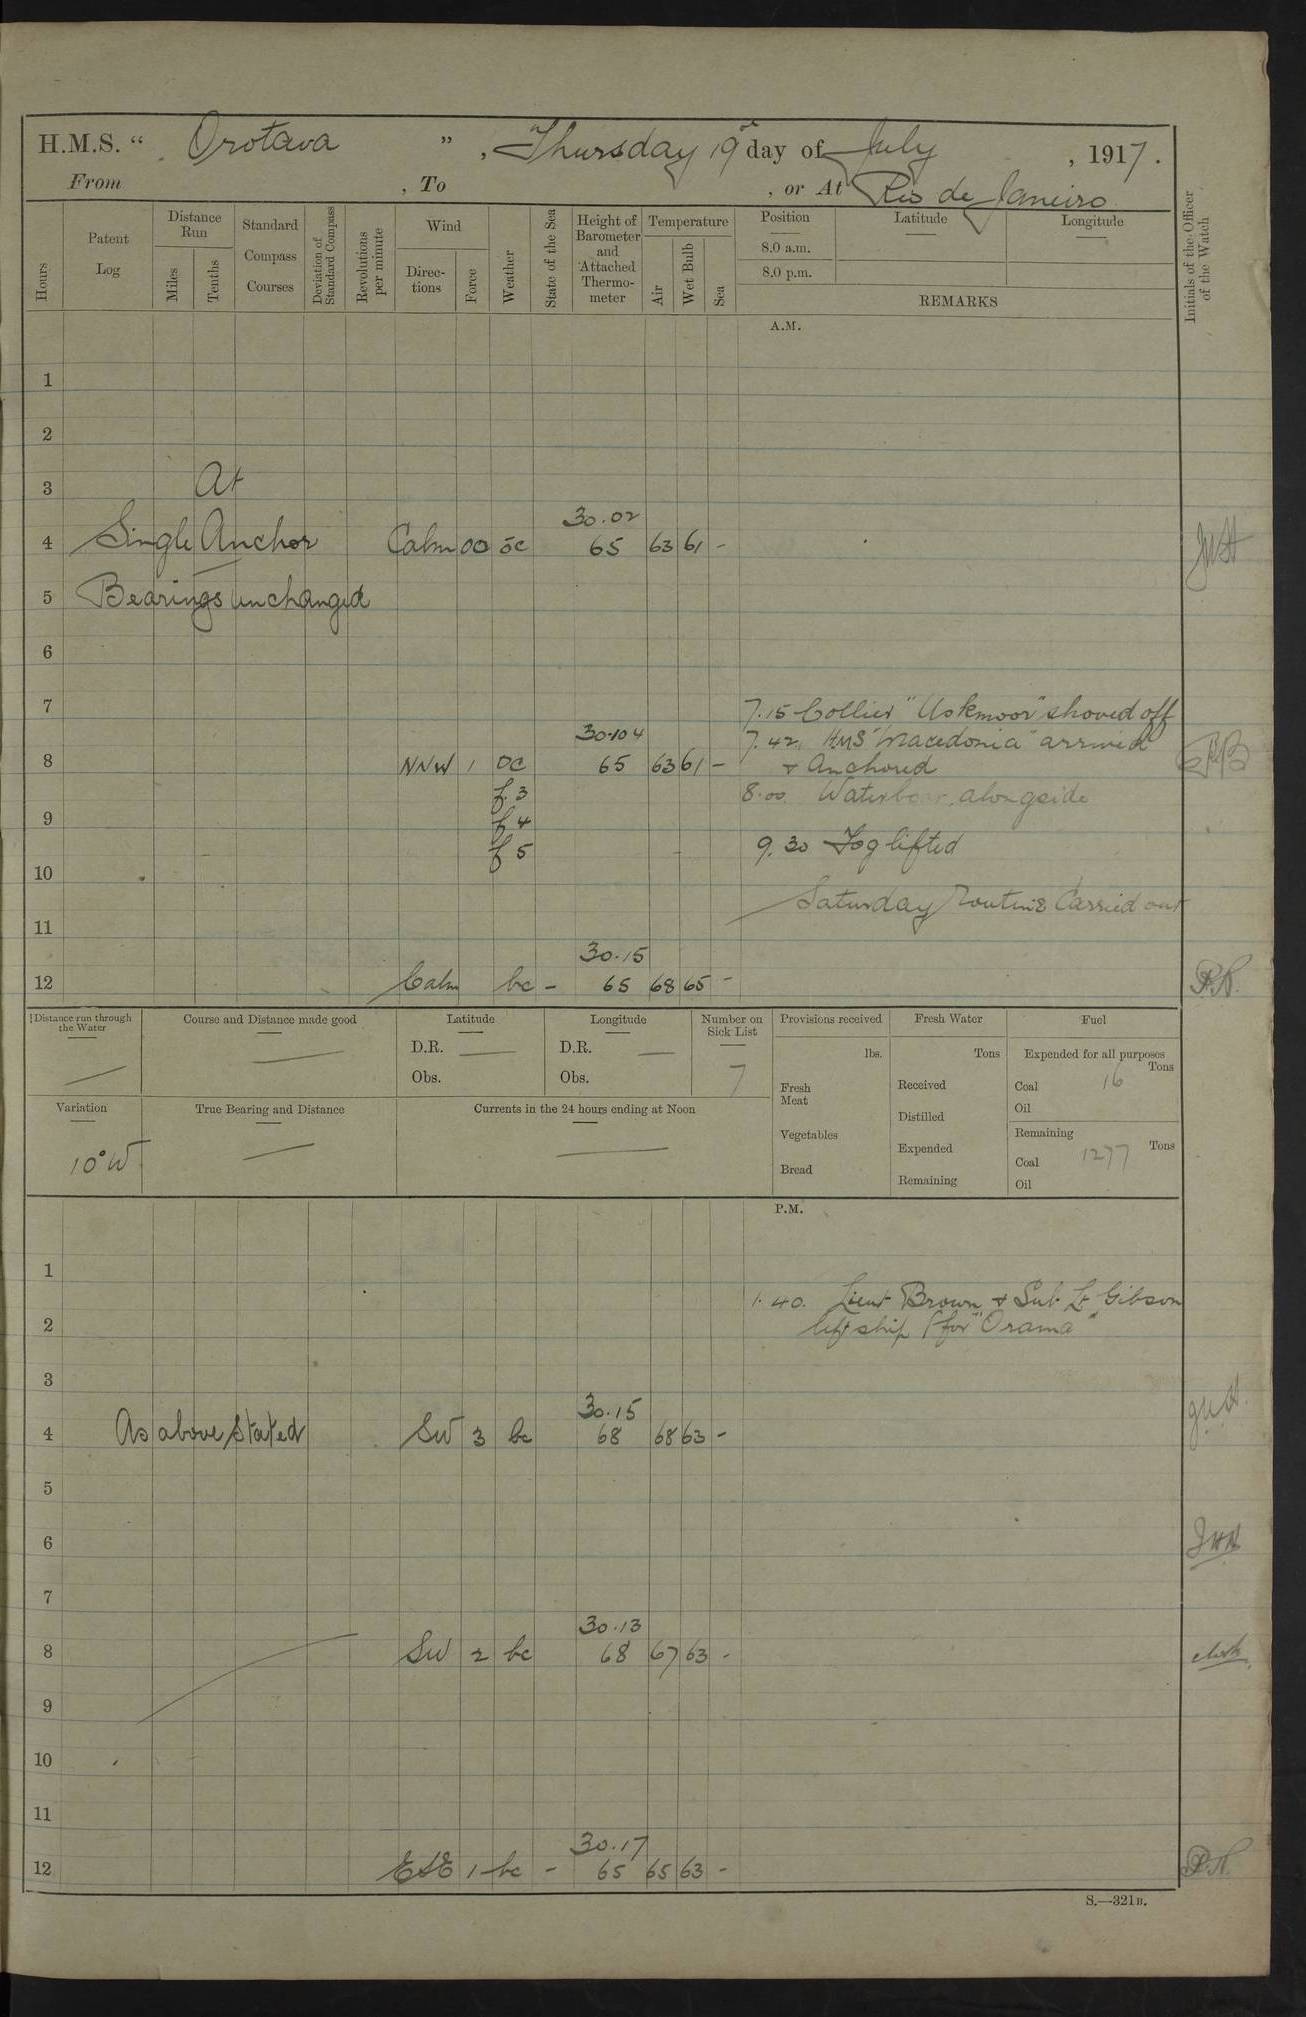 H.M.S. “ Orotava ” , Thursday 19th day of July , 1917.
From , To , or At Rio de Janeiro
Hours
Patent Log
Distance Run
Miles
Tenths
Standard Compass Courses
Deviation of Standard Compass
Revolutions per minute
Wind
Directions
Force
Weather
State of the Sea
Height of Barometer and Attached Thermometer
Temperature
Air
Wet Bulb
Sea
Position
8.0 a.m.
8.0 p.m.
Latitude
Longitude
REMARKS
Initials of the Officer of the Watch
A.M.
1
2
3 At
30.02
4 Single Anchor Calm 00 oc 65 63 61 -
5 Bearings unchanged
6
7 7.15 Collier "Uskmoor" shoved off
30.104 7.42. HMS "Macedonia" arrived
8 NNW 1 oc 65 63 61 - & Anchored
f.3 8.00. alongside
9 f 4
f 5 9.30 Fog lifted
10
Saturday Routine Carried out
11
30.15
12 Calm bc - 65 68 65 - P.N.
Distance run through the Water
Course and Distance made good
Latitude
D.R.
Obs.
Longitude
D.R.
Obs.
Number on Sick List
7
Provisions received
lbs.
Fresh Meat
Vegetables
Bread
Fresh Water
Tons
Received
Distilled
Expended
Remaining
Fuel
Expended for all purposes
Tons
Coal 16
Oil
Remaining
Tons
Coal 1277
Oil
Variation
10°W
True Bearing and Distance
Currents in the 24 hours ending at Noon
P.M.
1
1.40. Lieut Brown & Sub Lt Gibson
2 left ship (for "Orama"
3
30.15
4 As above stated SW 3 bc 68 68 63 -
5
6
7
30.13
8 SW 2 bc 68 67 63 -
9
10
11
30.17
12 ESE 1 bc - 65 65 63 - P.N.
S.—321B.